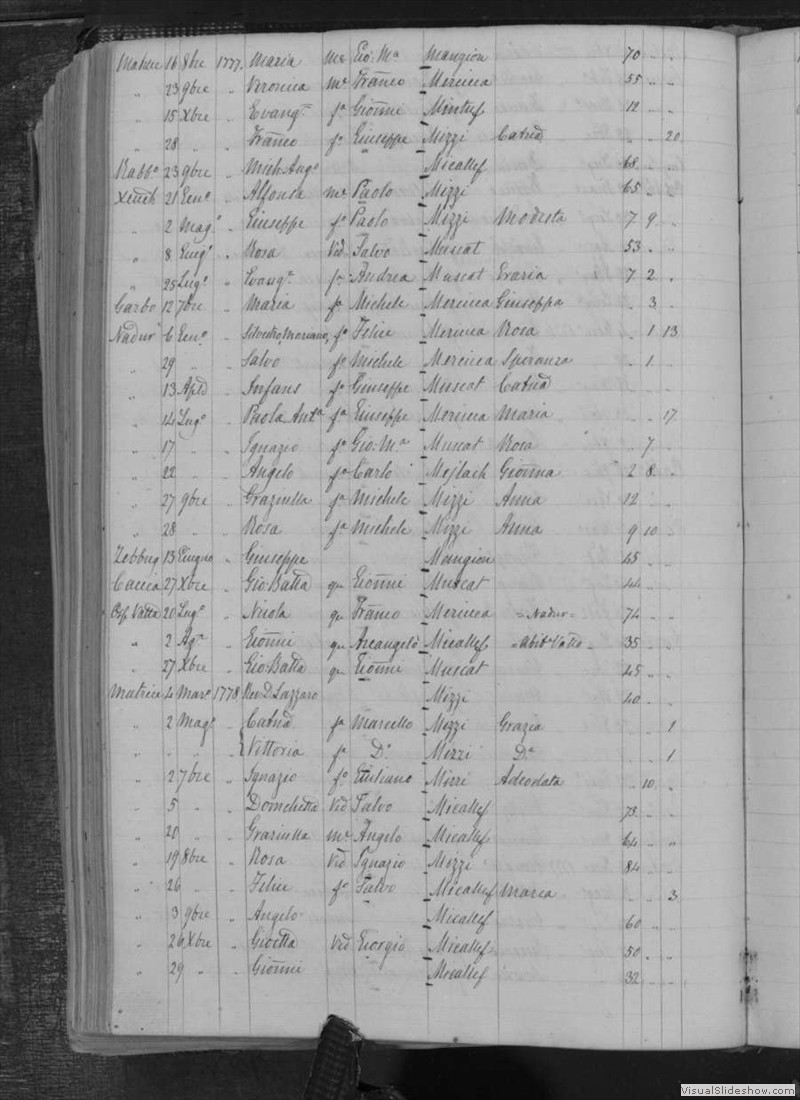 Matrice 16 8bre 1777. Maria mе Gio: Ma Mangion 70 " "
" 23 9bre " Veronica me Franco Mercieca 55 " "
" 15 Xbre " Evangta fa Gionni Mintuf 12 " "
" 28 " " Franco fo Giuseppe Mizzi Catna " " 20
Rabbo 23 9bre " Mich: Ango Micallef 68 " "
Xeuch 21 Geno " Alfonsa me Paolo Mizzi 65 " "
" 2 Mago " Giuseppe fo Paolo Mizzi Modesta 7 9 "
" 8 Giugo " Rosa Vid Salvo Muscat 53 " "
" 25 Lugo " Evangta fa Andrea Muscat Evaria 7 2 "
Garbo 12 7bre " Maria fa Michele Mercieca Giuseppa " 3 "
Nadur 6 Geno " Silvestro Mariano, fo Felice Mercieca Rosa " 1 13
" 29 " " Salvo fo Michele Mercieca Speranza " 1 "
" 13 Aple " Infans fo Giuseppe Muscat Catna
" 14 Lugo " Paola Anta fa Giuseppe Mercieca Maria " " 17
" 17 " " Ignazio fo Gio: Ma Muscat Rosa " 7 "
" 22 " " Angelo fo Carlo Mejlach Gionna 2 8 "
" 27 9bre " Graziulla fa Michele Mizzi Anna 12 " "
" 28 " " Rosa fa Michele Mizzi Anna 9 10 "
Zebbug 13 Giugno " Giuseppe Mangion 45 "
Caccia 27 Xbre " Gio: Batta qu Gionni Muscat 44 "
Osp Vitta 20 Lugo " Nicola qu Franco Mercieca = Nadur = 74 "
" 2 Ago " Gionni qu Arcangelo Micallef = Abite Vitto = 35 "
" 27 Xbre " Gio: Batta qu Gionni Muscat 45 " "
Matrice 4 Maro 1778, Rev D. Lazzaro Mizzi 40 " "
" 2 Mago " Catna fa Marcello Mizzi Grazia " " 1
" " " Vittoria fa Do Mizzi Da " " 1
" 2 7bre " Ignazio fo Giuliano Mizzi Adeodata " 10 "
" 5 " " Domchella Vid Salvo Micallef 73 " "
" 20 " " Graziulla me Angelo Micallef 64 " "
" 19 8bre " Rosa Vid Ignazio Mizzi 84 " "
" 26 " " Felice fo Salvo Micallef Maria " " 3
" 3 9bre " Angelo Micallef 60 " "
" 26 Xbre " Gioetta Vid Giorgio Micallef 50 " "
" 29 " " Gionni Micallef 32 " "
VisualSlideshow.com